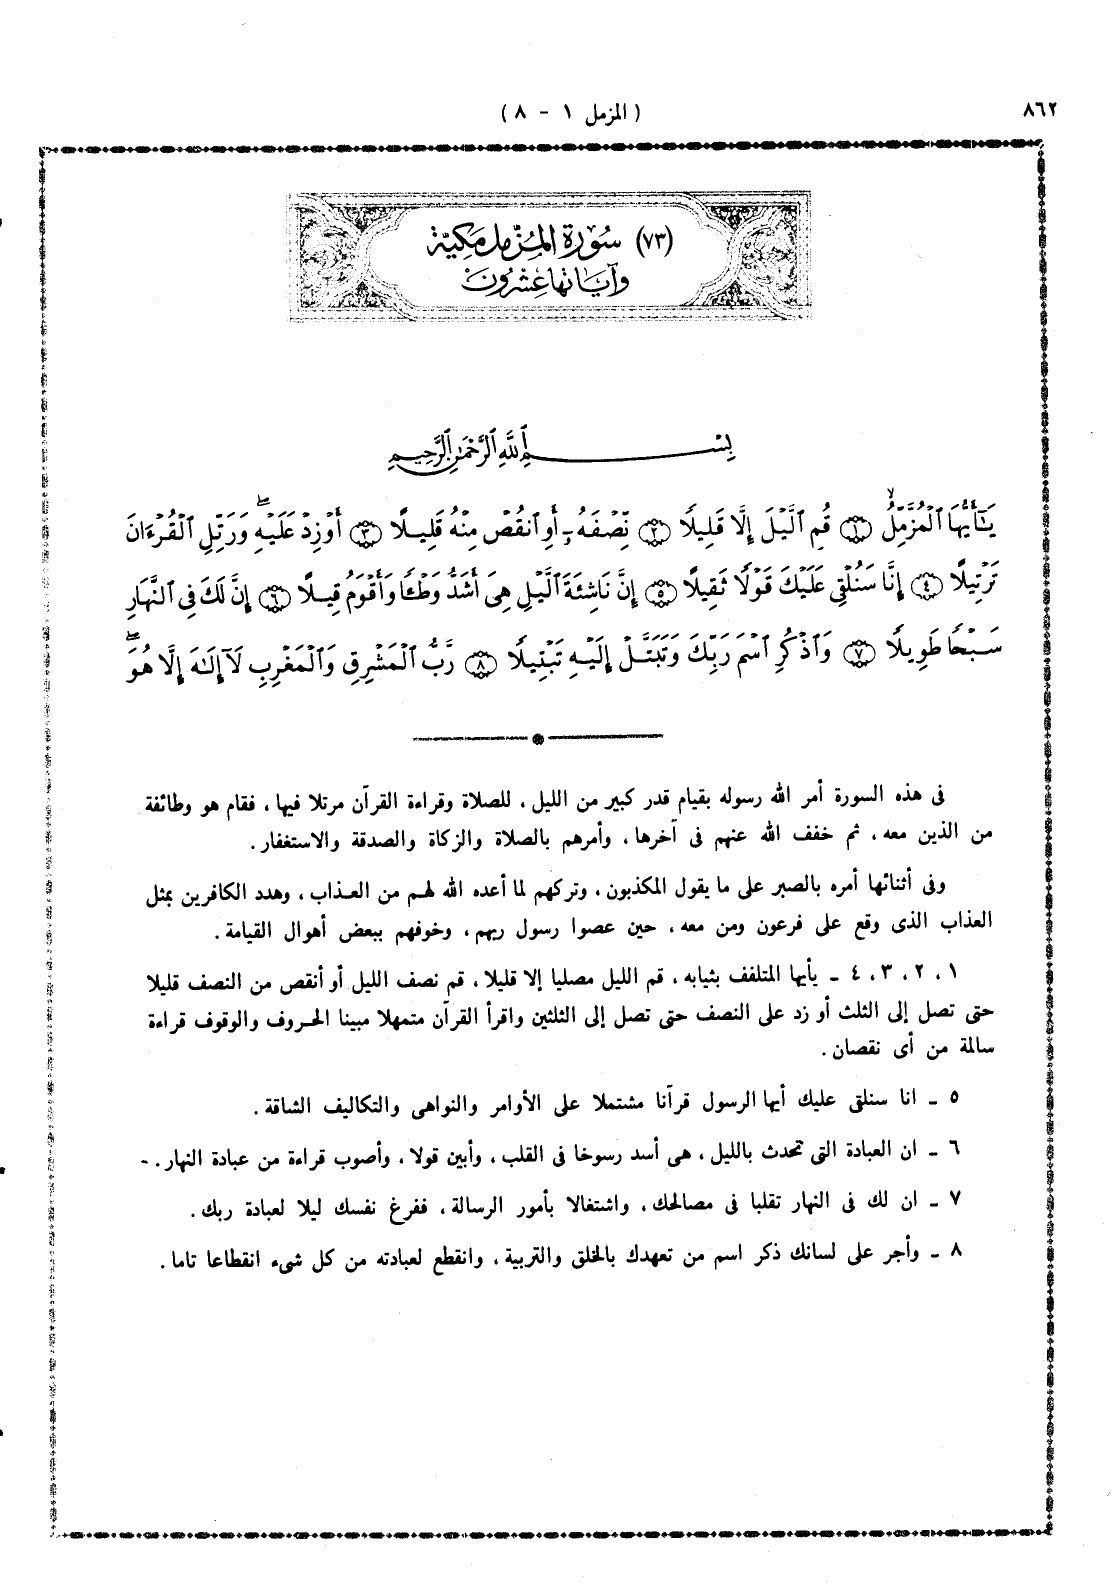 ٨٦٢
( المزمل ١ - ٨ )
(٧٣) سُورَة المُزّمل مَكيّة
وَآيَاتهَا عِشرُونَ
بِسْمِ ٱللَّهِ ٱلرَّحْمَٰنِ ٱلرَّحِيمِ
يَٰٓأَيُّهَا ٱلْمُزَّمِّلُ ۙ ﴿١﴾ قُمِ ٱلَّيْلَ إِلَّا قَلِيلًا ﴿٢﴾ نِّصْفَهُۥٓ أَوِ ٱنقُصْ مِنْهُ قَلِيلًا ﴿٣﴾ أَوْ زِدْ عَلَيْهِ ۖ وَرَتِّلِ ٱلْقُرْءَانَ
تَرْتِيلًا ﴿٤﴾ إِنَّا سَنُلْقِى عَلَيْكَ قَوْلًا ثَقِيلًا ﴿٥﴾ إِنَّ نَاشِئَةَ ٱلَّيْلِ هِىَ أَشَدُّ وَطْـًٔا وَأَقْوَمُ قِيلًا ﴿٦﴾ إِنَّ لَكَ فِى ٱلنَّهَارِ
سَبْحًا طَوِيلًا ﴿٧﴾ وَٱذْكُرِ ٱسْمَ رَبِّكَ وَتَبَتَّلْ إِلَيْهِ تَبْتِيلًا ﴿٨﴾ رَّبُّ ٱلْمَشْرِقِ وَٱلْمَغْرِبِ لَآ إِلَٰهَ إِلَّا هُوَ ۖ
فى هذه السورة أمر الله رسوله بقيام قدر كبير من الليل ، للصلاة وقراءة القرآن مرتلا فيها ، فقام هو وطائفة
من الذين معه ، ثم خفف الله عنهم فى آخرها ، وأمرهم بالصلاة والزكاة والصدقة والاستغفار .
وفى أثنائها أمره بالصبر على ما يقول المكذبون ، وتركهم لما أعده الله لهم من العذاب ، وهدد الكافرين بمثل
العذاب الذى وقع على فرعون ومن معه ، حين عصوا رسول ربهم ، وخوفهم ببعض أهوال القيامة .
١ ، ٢ ، ٣ ، ٤ ـ يأيها المتلفف بثيابه ، قم الليل مصليا إلا قليلا ، قم نصف الليل أو أنقص من النصف قليلا
حتى تصل إلى الثلث أو زد على النصف حتى تصل إلى الثلثين واقرأ القرآن متمهلا مبينا الحروف والوقوف قراءة
سالمة من أى نقصان .
٥ ـ انا سنلقى عليك أيها الرسول قرآنا مشتملا على الأوامر والنواهى والتكاليف الشاقة .
٦ ـ ان العبادة التى تحدث بالليل ، هى أسد رسوخا فى القلب ، وأبين قولا ، وأصوب قراءة من عبادة النهار . -
٧ ـ ان لك فى النهار تقلبا فى مصالحك ، واشتغالا بأمور الرسالة ، ففرغ نفسك ليلا لعبادة ربك .
٨ ـ وأجر على لسانك ذكر اسم من تعهدك بالخلق والتربية ، وانقطع لعبادته من كل شىء انقطاعا تاما .